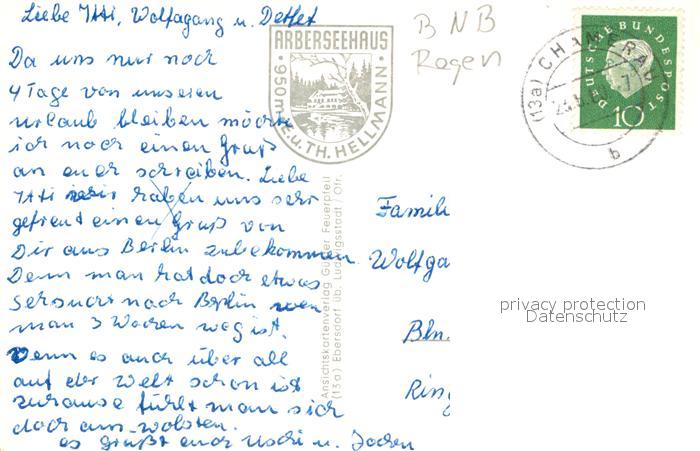 Liebe Itti, Wolfagang u. Detlef
Da uns nur noch
4 Tage von unseren
urlaub bleiben möchte
ich noch einen Gruß
an euch schreiben. Liebe
Itti haben uns sehr
gefreut einen Gruß von
Dir aus Berlin zubekommen.
Denn man hat doch etwas
Sehnsucht nach Berlin wen
man 3 Wochen weg ist.
Wenn es auch über all
auf der Welt schön ist
zuhause fühlt man sich
doch am wolsten.
es grüßt euch Uschi u. Jochen
ARBERSEEHAUS
· 950m · E.u.TH. HELLMANN ·
BNB
Regen
DEUTSCHE BUNDESPOST
10
(13a) CHAMERAU
b
Ansichtskartenverlag Günther Feuerpfeil
(13a) Ebersdorf üb. Ludwigsstadt / Ofr.
Famili
Wolfga
Bln.
Ring
privacy protection
Datenschutz